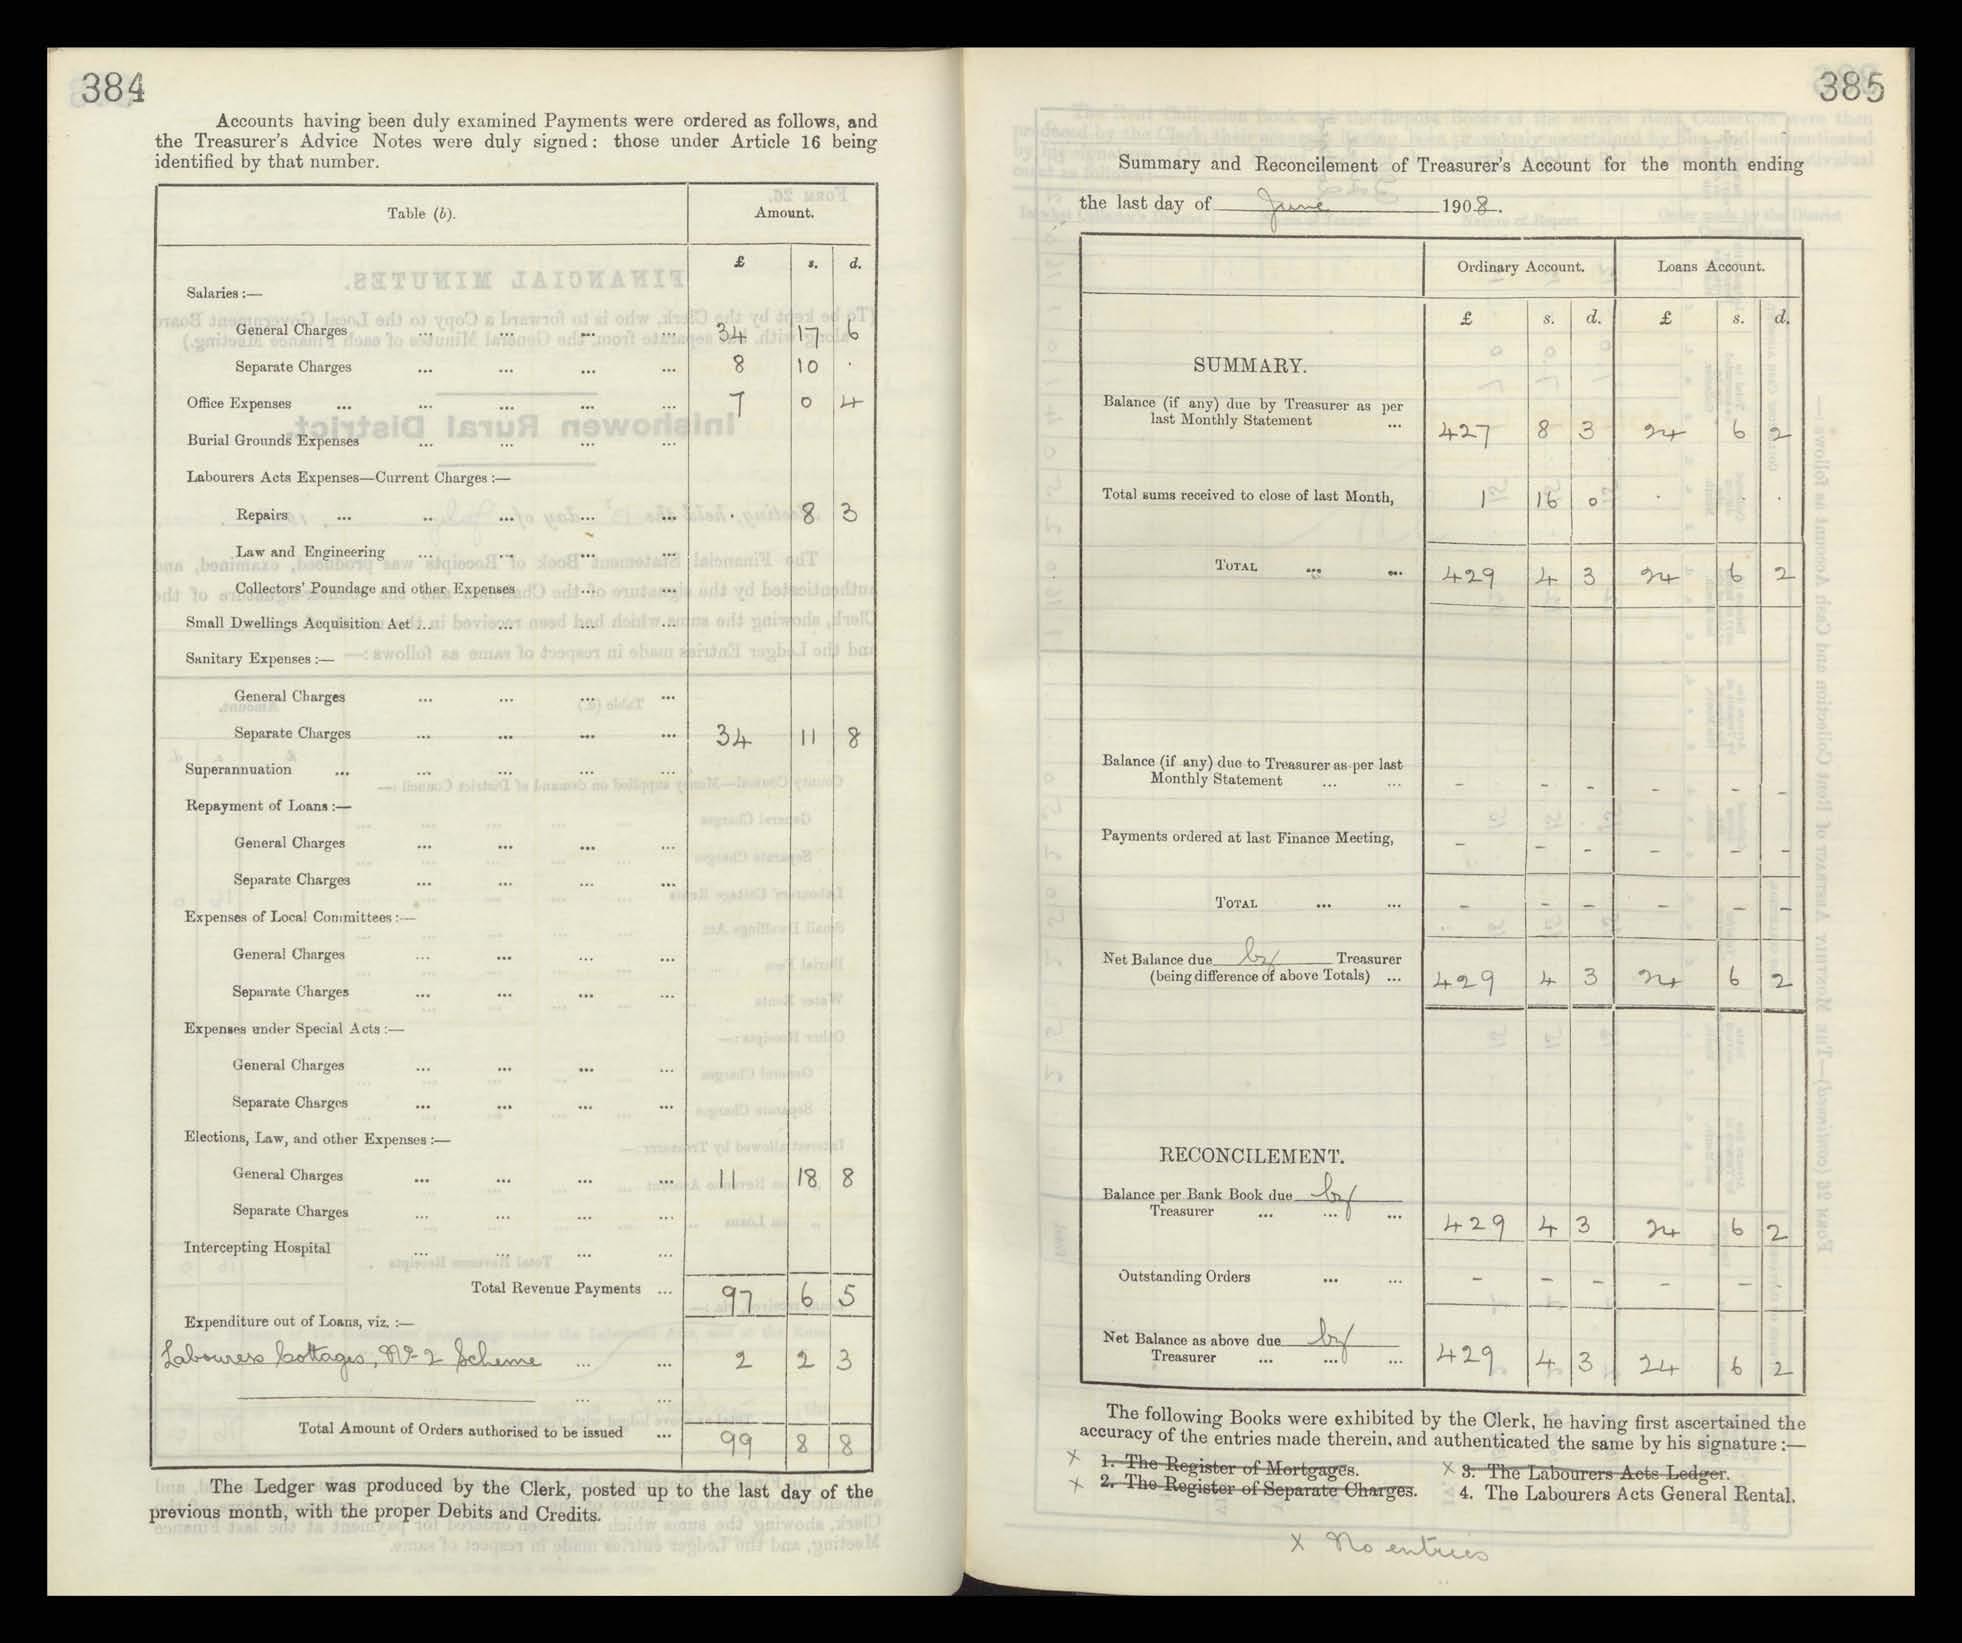 384
Accounts having been duly examined Payments were ordered as follows, and
the Treasurer's Advice Notes were duly signed: those under Article 16 being
identified by that number.
Table (b). Amount.
£ s. d.
Salaries:—
General Charges ... ... ... ... 34 17 6
Separate Charges ... ... ... ... 8 10 .
Office Expenses ... ... ... ... ... 7 0 4
Burial Grounds Expenses ... ... ... ...
Labourers Acts Expenses—Current Charges:—
Repairs ... ... ... ... ... . 8 3
Law and Engineering ... ... ... ...
Collectors' Poundage and other Expenses ... ...
Small Dwellings Acquisition Act ... ... ... ...
Sanitary Expenses:—
General Charges ... ... ... ...
Separate Charges ... ... ... ... 34 11 8
Superannuation ... ... ... ... ...
Repayment of Loans:—
General Charges ... ... ... ...
Separate Charges ... ... ... ...
Expenses of Local Committees:—
General Charges ... ... ... ...
Separate Charges ... ... ... ...
Expenses under Special Acts:—
General Charges ... ... ... ...
Separate Charges ... ... ... ...
Elections, Law, and other Expenses:—
General Charges ... ... ... ... 11 18 8
Separate Charges ... ... ... ...
Intercepting Hospital ... ... ... ...
Total Revenue Payments ... 97 6 5
Expenditure out of Loans, viz.:—
Labourers Cottages, No 2 Scheme ... ... 2 2 3
... ...
Total Amount of Orders authorised to be issued ... 99 8 8
The Ledger was produced by the Clerk, posted up to the last day of the
previous month, with the proper Debits and Credits.
385
Summary and Reconcilement of Treasurer's Account for the month ending
the last day of June 1908.
Ordinary Account. Loans Account.
£ s. d. £ s. d.
SUMMARY.
Balance (if any) due by Treasurer as per
last Monthly Statement ... 427 8 3 24 6 2
Total sums received to close of last Month, 1 16 0 . . .
TOTAL ... ... 429 4 3 24 6 2
Balance (if any) due to Treasurer as per last
Monthly Statement ... ... - - - - - -
Payments ordered at last Finance Meeting, - - - - - -
TOTAL ... ... - - - - - -
Net Balance due by Treasurer
(being difference of above Totals) ... 429 4 3 24 6 2
RECONCILEMENT.
Balance per Bank Book due by
Treasurer ... ... ... 429 4 3 24 6 2
Outstanding Orders ... ... - - - - - -
Net Balance as above due by
Treasurer ... ... ... 429 4 3 24 6 2
The following Books were exhibited by the Clerk, he having first ascertained the
accuracy of the entries made therein, and authenticated the same by his signature:—
x 1. The Register of Mortgages. x 3. The Labourers Acts Ledger.
x 2. The Register of Separate Charges. 4. The Labourers Acts General Rental.
x No entries